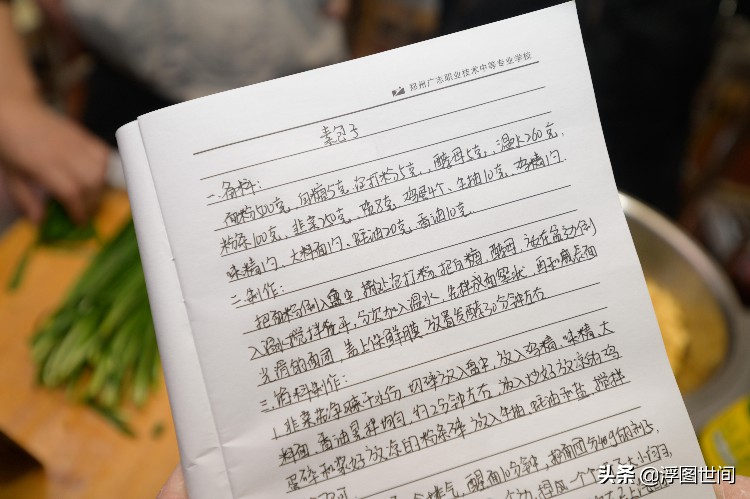 郑州广志职业技术中等专业学校
素包子
一、备料:
面粉500克、白糖5克、泡打粉5克、酵母5克、温水260克、
粉条100克、韭菜 克、盐8克、鸡蛋4个、生抽10克、鸡精1勺、
味精1勺、大料面1勺、蚝油20克、香油10克。
二、制作:
把面粉倒入盆中,掺上泡打粉,把白糖、酵母,放在盆边倒
入温水搅拌 ,分次加入温水,先揉成面絮状,再和成表面
光滑的面团,盖上保鲜膜,放置发酵30分钟左右
三、馅料制作:
1.韭菜 净晾干水份,切碎放入盆中,放入鸡精、味精、大
料面,香油里拌均匀,约2分钟左右,放入炒好放凉的鸡
蛋碎和 好放凉的粉条碎,放入生抽、蚝油和盐,搅拌
气,醒面10分钟,把面团分
头条 @浮图世间